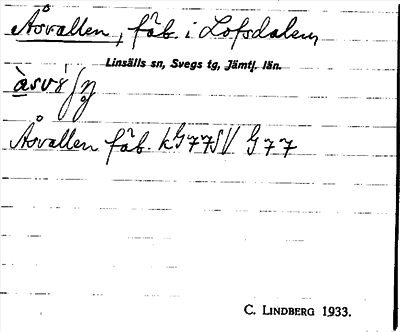 Åsvallen, fäb. i Lofsdalen,
Linsälls sn, Svegs tg, Jämtl. län.
Åsvallen fäb. kG77SV G77
C. LINDBERG 1933.